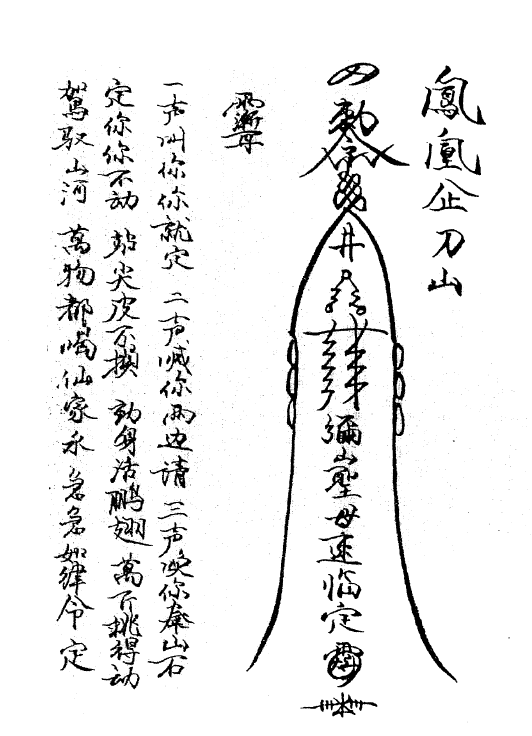 鳳凰企刀山
敕
井
彌山聖母速臨定
一声叫你你就定 二声喊你両边請 三声喚你泰山石
定你你不动 站尖皮不损 动身活鹏翅 萬斤挑得动
駕馭山河 萬物都喝仙家水 急急如律令 定